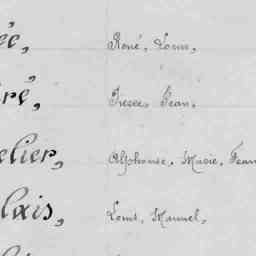 ée, René, Louis,
ré, Jean,
elier, Alphonse, Marie, Jean
lais, Louis, Manuel,